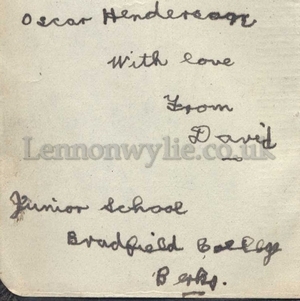 Oscar Henderson
With love
From
David
Lennonwylie.co.uk
Junior School
Bradfield College
Berks.